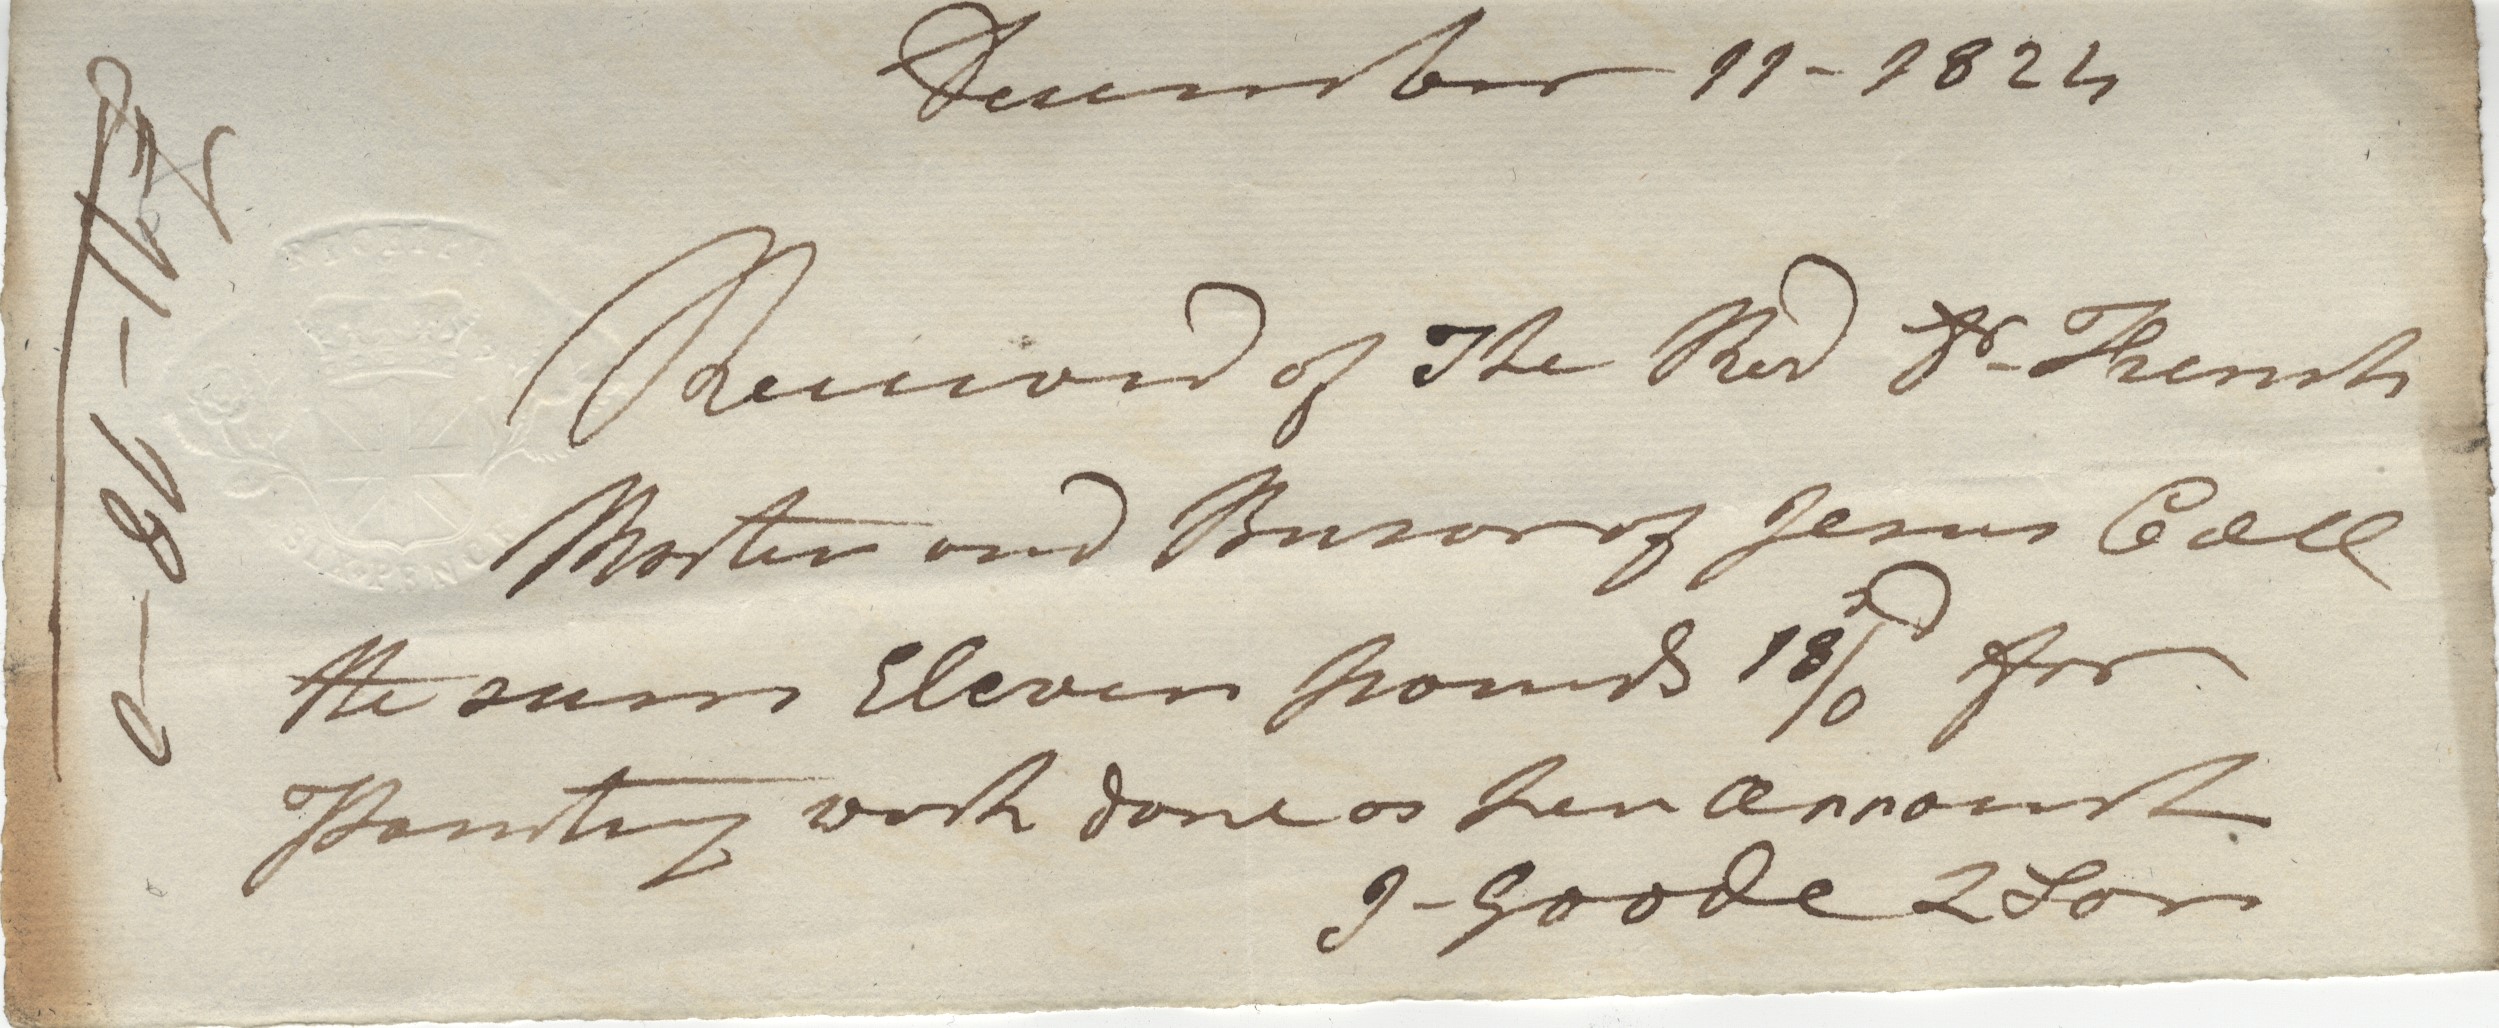 December 11 - 1824
Received of The Revd Dr - French
Master and Bursar of Jesus Coll
the sum Eleven pounds 18s/0d for
Painting work done as per Account
J - Goode & Son
£11 - 18 - 0
RECEIPT
SIX PENCE